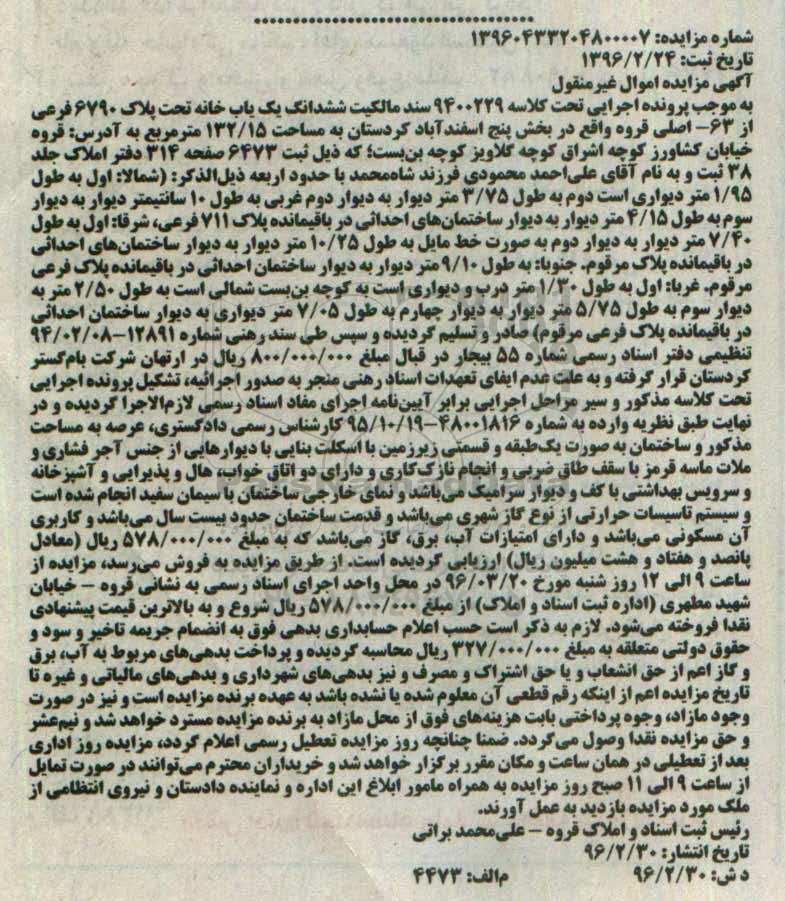 شماره مزایده: ۱۳۹۶۰۴۳۳۲۰۴۸۰۰۰۰۷
تاریخ ثبت: ۱۳۹۶/۲/۲۴
آگهی مزایده اموال غیرمنقول
به موجب پرونده اجرایی تحت کلاسه ۹۴۰۰۲۲۹ سند مالکیت ششدانگ یک باب خانه تحت پلاک ۶۷۹۰ فرعی
از ۶۳- اصلی قروه واقع در بخش پنج اسفندآباد کردستان به مساحت ۱۳۲/۱۵ مترمربع به آدرس: قروه
خیابان کشاورز کوچه اشراق کوچه گلاویز کوچه بن‌بست؛ که ذیل ثبت ۶۴۷۳ صفحه ۳۱۴ دفتر املاک جلد
۳۸ ثبت و به نام آقای علی‌احمد محمودی فرزند شاه‌محمد با حدود اربعه ذیل‌الذکر: (شمالا: اول به طول
۱/۹۵ متر دیواری است دوم به طول ۳/۷۵ متر دیوار به دیوار دوم غربی به طول ۱۰ سانتیمتر دیوار به دیوار
سوم به طول ۴/۱۵ متر دیوار به دیوار ساختمان‌های احداثی در باقیمانده پلاک ۷۱۱ فرعی، شرقا: اول به طول
۷/۴۰ متر دیوار به دیوار دوم به صورت خط مایل به طول ۱۰/۲۵ متر دیوار به دیوار ساختمان‌های احداثی
در باقیمانده پلاک مرقوم. جنوبا: به طول ۹/۱۰ متر دیوار به دیوار ساختمان احداثی در باقیمانده پلاک فرعی
مرقوم. غربا: اول به طول ۱/۳۰ متر درب و دیواری است به کوچه بن‌بست شمالی است به طول ۲/۵۰ متر به
دیوار سوم به طول ۵/۷۵ متر دیوار به دیوار چهارم به طول ۷/۰۵ متر دیواری به دیوار ساختمان احداثی
در باقیمانده پلاک فرعی مرقوم) صادر و تسلیم گردیده و سپس طی سند رهنی شماره ۱۲۸۹۱-۹۴/۰۲/۰۸
تنظیمی دفتر اسناد رسمی شماره ۵۵ بیجار در قبال مبلغ ۸۰۰/۰۰۰/۰۰۰ ریال در ارتهان شرکت بام‌گستر
کردستان قرار گرفته و به علت عدم ایفای تعهدات اسناد رهنی منجر به صدور اجرائیه، تشکیل پرونده اجرایی
تحت کلاسه مذکور و سیر مراحل اجرایی برابر آیین‌نامه اجرای مفاد اسناد رسمی لازم‌الاجرا گردیده و در
نهایت طبق نظریه وارده به شماره ۴۸۰۰۱۸۱۶-۹۵/۱۰/۱۹ کارشناس رسمی دادگستری، عرصه به مساحت
مذکور و ساختمان به صورت یک‌طبقه و قسمتی زیرزمین با اسکلت بنایی با دیوارهایی از جنس آجر فشاری و
ملات ماسه قرمز با سقف طاق ضربی و انجام نازک‌کاری و دارای دو اتاق خواب، هال و پذیرایی و آشپزخانه
و سرویس بهداشتی با کف و دیوار سرامیک می‌باشد و نمای خارجی ساختمان با سیمان سفید انجام شده است
و سیستم تاسیسات حرارتی از نوع گاز شهری می‌باشد و قدمت ساختمان حدود بیست سال می‌باشد و کاربری
آن مسکونی می‌باشد و دارای امتیازات آب، برق، گاز می‌باشد که به مبلغ ۵۷۸/۰۰۰/۰۰۰ ریال (معادل
پانصد و هفتاد و هشت میلیون ریال) ارزیابی گردیده است. از طریق مزایده به فروش می‌رسد، مزایده از
ساعت ۹ الی ۱۲ روز شنبه مورخ ۹۶/۰۳/۲۰ در محل واحد اجرای اسناد رسمی به نشانی قروه – خیابان
شهید مطهری (اداره ثبت اسناد و املاک) از مبلغ ۵۷۸/۰۰۰/۰۰۰ ریال شروع و به بالاترین قیمت پیشنهادی
نقدا فروخته می‌شود. لازم به ذکر است حسب اعلام حسابداری بدهی فوق به انضمام جریمه تاخیر و سود و
حقوق دولتی متعلقه به مبلغ ۳۲۷/۰۰۰/۰۰۰ ریال محاسبه گردیده و پرداخت بدهی‌های مربوط به آب، برق
و گاز اعم از حق انشعاب و یا حق اشتراک و مصرف و نیز بدهی‌های شهرداری و بدهی‌های مالیاتی و غیره تا
تاریخ مزایده اعم از اینکه رقم قطعی آن معلوم شده یا نشده باشد به عهده برنده مزایده است و نیز در صورت
وجود مازاد، وجوه پرداختی بابت هزینه‌های فوق از محل مازاد به برنده مزایده مسترد خواهد شد و نیم‌عشر
و حق مزایده نقدا وصول می‌گردد. ضمنا چنانچه روز مزایده تعطیل رسمی اعلام گردد، مزایده روز اداری
بعد از تعطیلی در همان ساعت و مکان مقرر برگزار خواهد شد و خریداران محترم می‌توانند در صورت تمایل
از ساعت ۹ الی ۱۱ صبح روز مزایده به همراه مامور ابلاغ این اداره و نماینده دادستان و نیروی انتظامی از
ملک مورد مزایده بازدید به عمل آورند.
رئیس ثبت اسناد و املاک قروه – علی‌محمد براتی
تاریخ انتشار: ۹۶/۲/۳۰
د ش: ۹۶/۲/۳۰ م‌الف: ۴۴۷۳